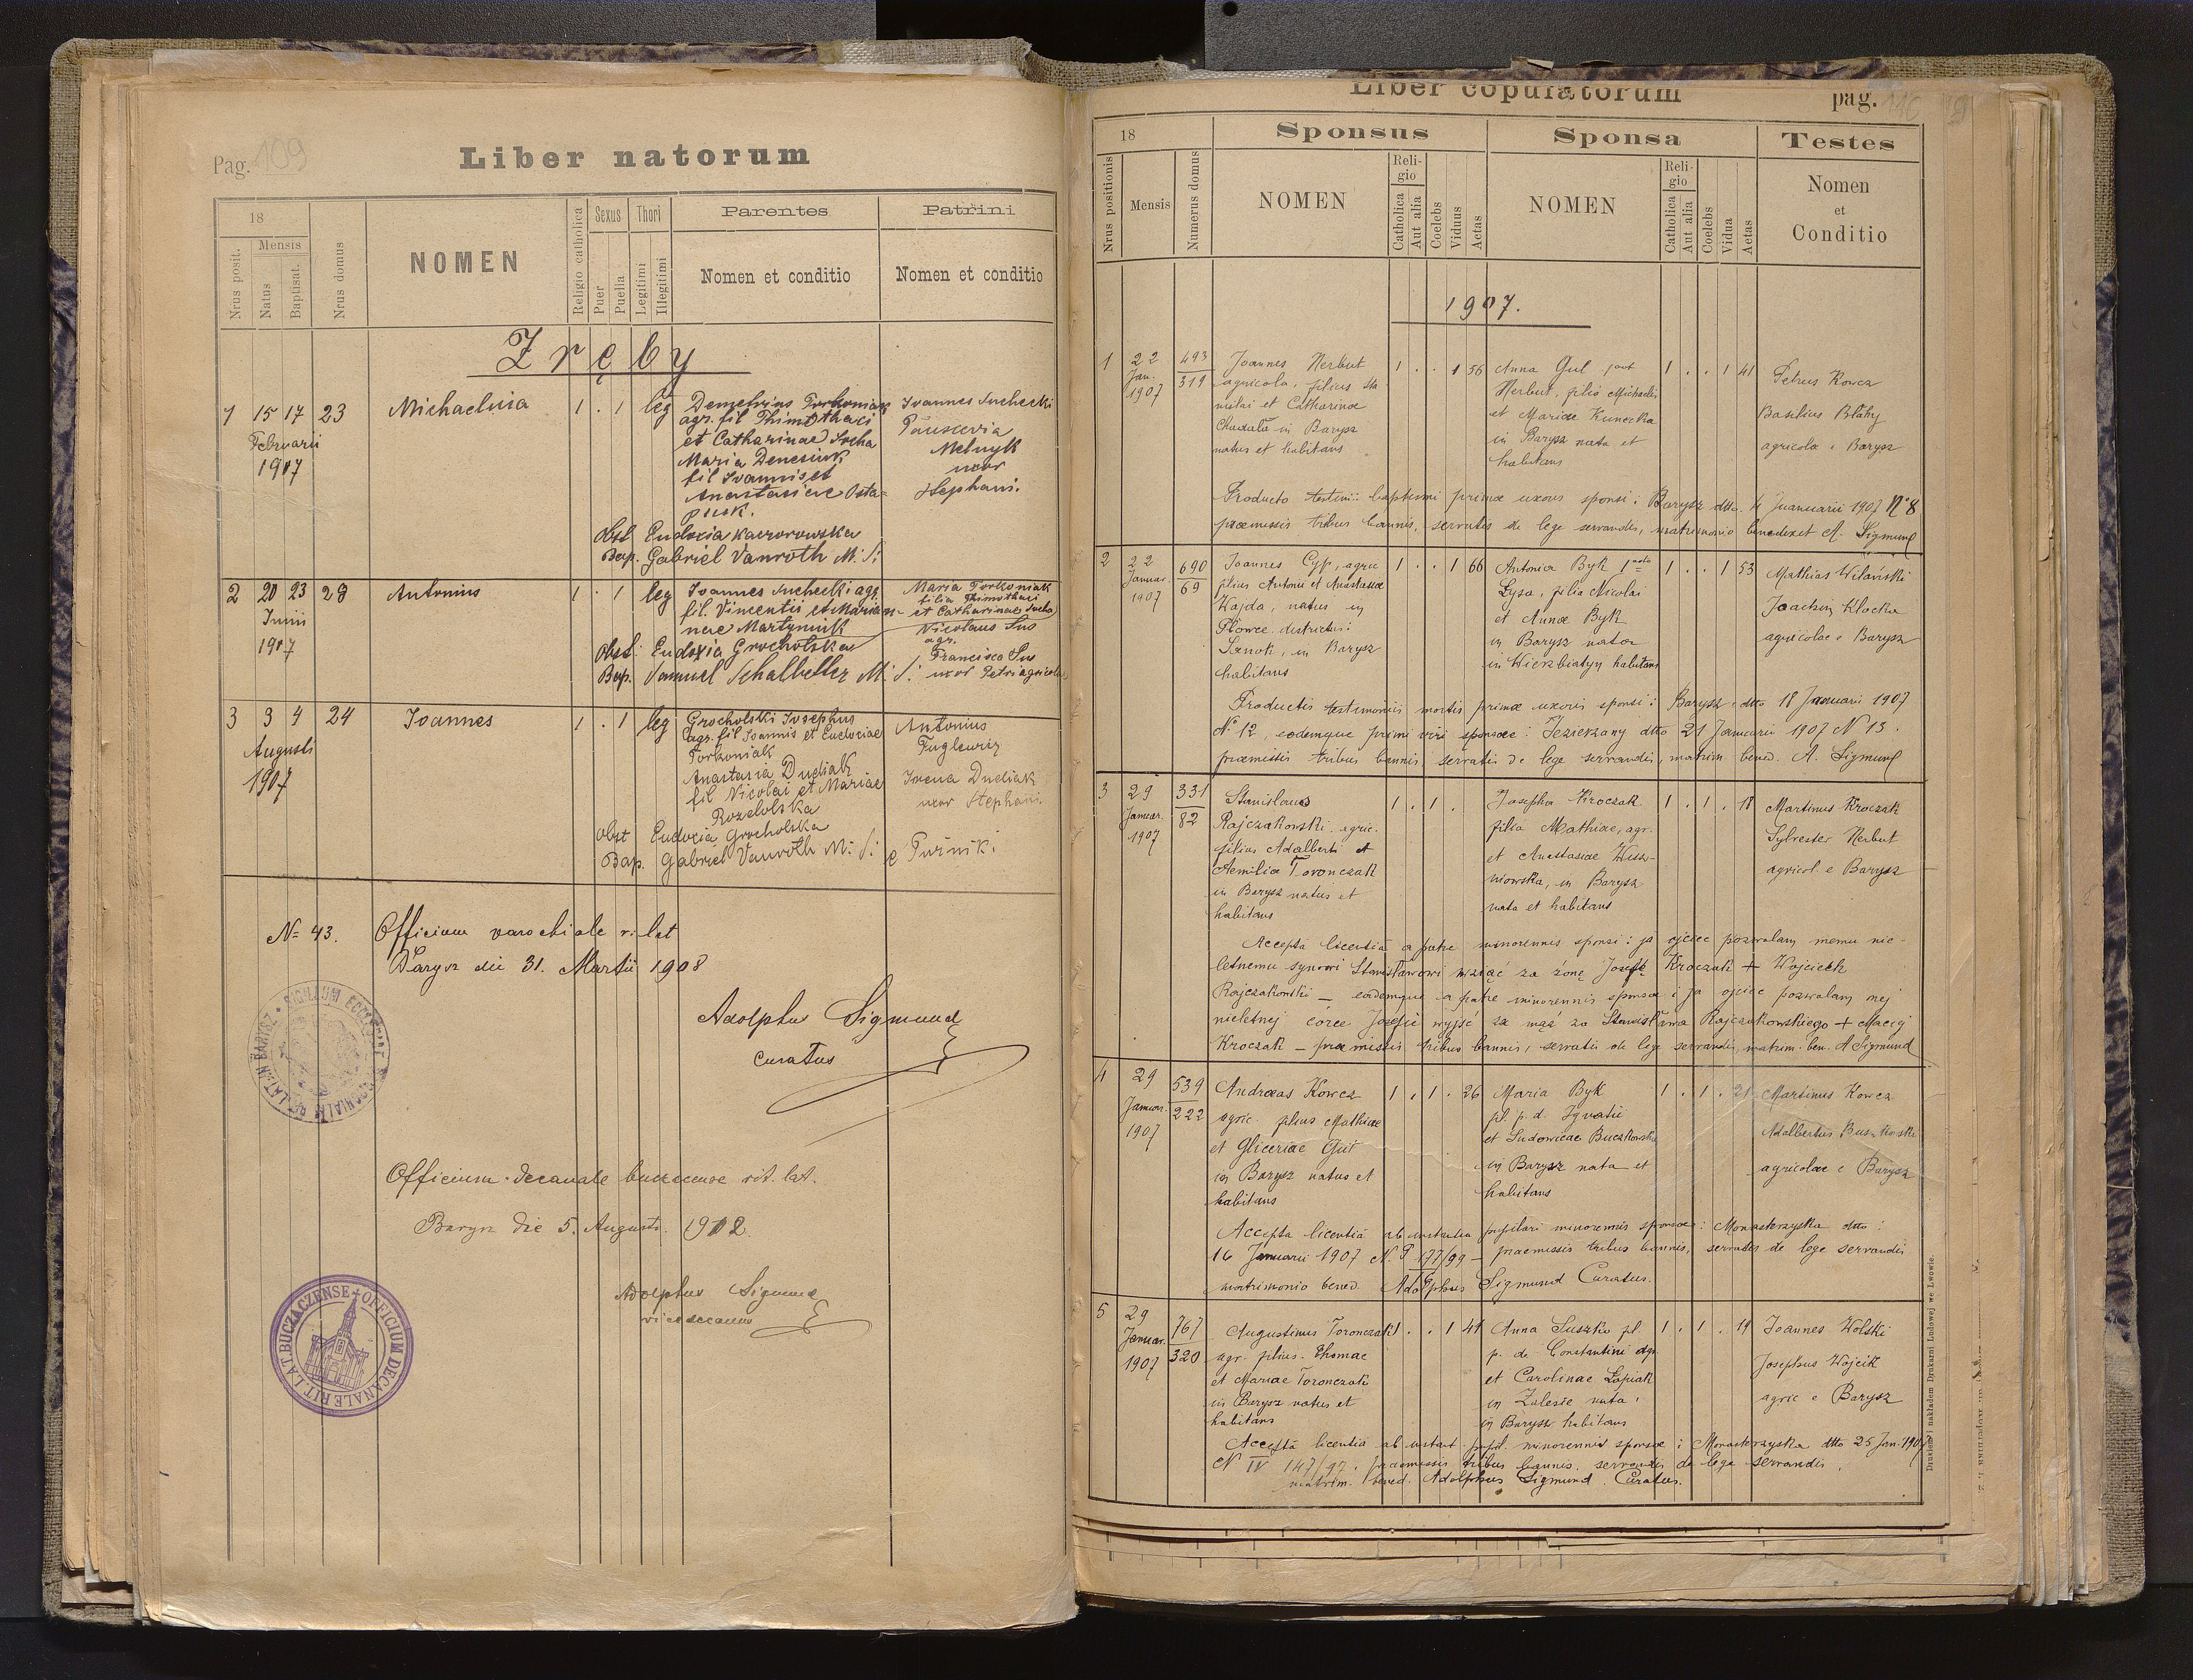 Pag. 109
Liber natorum
18
Nrus posit.
Mensis
Natus
Baptisat.
Nrus domus
NOMEN
Religio catholica
Sexus
Puer
Puella
Thori
Legitimi
Illegitimi
Parentes
Nomen et conditio
Patrini
Nomen et conditio
Zręby
1 15 17 23 Michaelina 1 . 1 leg
Februarii
1907
Demetrius Torkoniak
agr. fil Thimothaei
et Catharinae Socha
Maria Denesiuk
fil Joannis et
Anastasiae Osta=
piuk.
Joannes Suchecki
Melnyk
uxor
Stephani.
Obst Eudoxia Kaczorowska
Bap. Gabriel Vanroth M. S.
2 20 23 28 Antonius 1 . 1 leg
Junii
1907
Joannes Suchecki agr.
fil. Vincentii et Marian-
nae Martyniuk
Maria Torkoniak
filia Thimothaei
et Catharinae Socha
Nicolaus Sus
agr.
Francisca Sus
uxor Petri agricola
Obst: Eudoxia Grocholska
Bap. Samuel Schalbetter M. S.
3 3 4 24 Joannes 1 . 1 leg
Augusti
1907
Grocholski Josephus
agr. fil Joannis et Eudoxiae
Torkoniak
Anastasia Dudiak
fil Nicolai et Mariae
Rozdolska
Antonius
Fuglewicz
Irena Dudiak
uxor Stephani.
Obst Eudoxia Grocholska
Bap. Gabriel Vanroth M. S.
e Puźniki
N= 43. Officium parochiale r. lat
Barysz die 31. Martii 1908
Adolphus Sigmund
Curatus
SIGILLUM ECCLESIAE PAROCHIALIS RIT. LAT. IN BARYSZ
Officium decanale buczacense rit. lat.
Barysz die 5. Augusti 1912.
Adolphus Sigmund
vicedecanus
OFFICIUM DECANALE RIT. LAT. BUCZACZENSE
Liber copulatorum
pag. 110
18
Nrus positionis
Mensis
Numerus domus
Sponsus
NOMEN
Religio
Catholica
Aut alia
Coelebs
Viduus
Aetas
Sponsa
NOMEN
Religio
Catholica
Aut alia
Coelebs
Vidua
Aetas
Testes
Nomen
et
Conditio
1907.
1 22 Jan. 1907 493 319
Joannes Herbut
agricola, filius Sta-
nislai et Catharinae
in Barysz
natus et habitans
1 . . 1 56
Anna Gul
Herbut, filia Michaelis
et Mariae Kunecka
in Barysz nata et
habitans
1 . . 1 41
Petrus Kowcz
Basilius Blahy
agricola e Barysz
Producto testimonii baptismi primae uxoris sponsi: Barysz dtto. 4 Januarii 1907 N° 8
praemissis tribus bannis, servatis de lege servandis, matrimonio benedixit A. Sigmund
2 22 Januar. 1907 690 69
Joannes Cyp, agric
filius Antonii et Anastasiae
Wajda, natus in
Płowce districtus:
Sanok, in Barysz
habitans
1 . . 1 66
Antonia Byk 1° voto
Łysa, filia Nicolai
et Annae Byk
in Barysz nata
in Wierzbiatyn habitans
1 . . 1 53
Mathias Wilański
Joachim Klocka
agricolae e Barysz
Productis testimoniis mortis primae uxoris sponsi: Barysz dtto 18 Januarii 1907
N° 12, eodemque primi viri sponsae: Jezierzany dtto 21 Januarii 1907 N 13.
praemissis tribus bannis, servatis de lege servandis, matrim. bened. A. Sigmund
3 29 Januar. 1907 331 82
Stanislaus
Rajczakowski, agric.
filius Adalberti et
Aemilia Toronczak
in Barysz natus et
habitans
1 . 1 .
Josepha Kroczak
filia Mathiae, agr.
et Anastasiae Wisz-
niowska, in Barysz
nata et habitans
1 . 1 . 18
Martinus Kroczak
Sylvester Herbut
agricol. e Barysz
Accepta licentia a patre minorennis sponsi: ja ojciec pozwalam memu nie-
letnemu synowi Stanisławowi wziąć za żonę Józefę Kroczak + Wojciech
Rajczakowski – eademque a patre minorennis sponsae: ja ojciec pozwalam mej
nieletnej córce Józefie wyjść za mąż za Stanisława Rajczakowskiego + Maciej
Kroczak – praemissis tribus bannis, servatis de lege servandis, matrim. ben. A Sigmund
4 29 Januar. 1907 539 222
Andreas Kowcz
agric. filius Mathiae
et Gliceriae Gut
in Barysz natus et
habitans
1 . 1 . 26
Maria Byk
fil. p. d. Ignatii
et Ludovicae Buczkowska
in Barysz nata et
habitans
1 . 1 . 21
Martinus Kowcz
Adalbertus
agricolae e Barysz
Accepta licentia ab instantia pupilari minorennis sponsae: Monasterzyska dtto:
16 Januarii 1907 N. P 177/99 – praemissis tribus bannis, servatis de lege servandis
matrimonio bened. Adolphus Sigmund Curatus.
5 29 Januar. 1907 767 320
Augustinus Toronczak
agr. filius Thomae
et Mariae Toronczak
in Barysz natus et
habitans
1 . . 1 41
Anna Suszko fil.
p. de Constantini agr.
et Carolinae Łapiak
in Zalesie nata,
in Barysz habitans
1 . 1 . 19
Joannes Wolski
Josephus Wojcik
agric e Barysz
Accepta licentia ab instant pupil. minorennis sponsae: Monasterzyska dtto 25 Jan. 1907
N IV 147/97. praemissis tribus bannis, servandis de lege servandis.
matrim. bened. Adolphus Sigmund. Curatus.
Drukiem i nakładem Drukarni Ludowej we Lwowie.